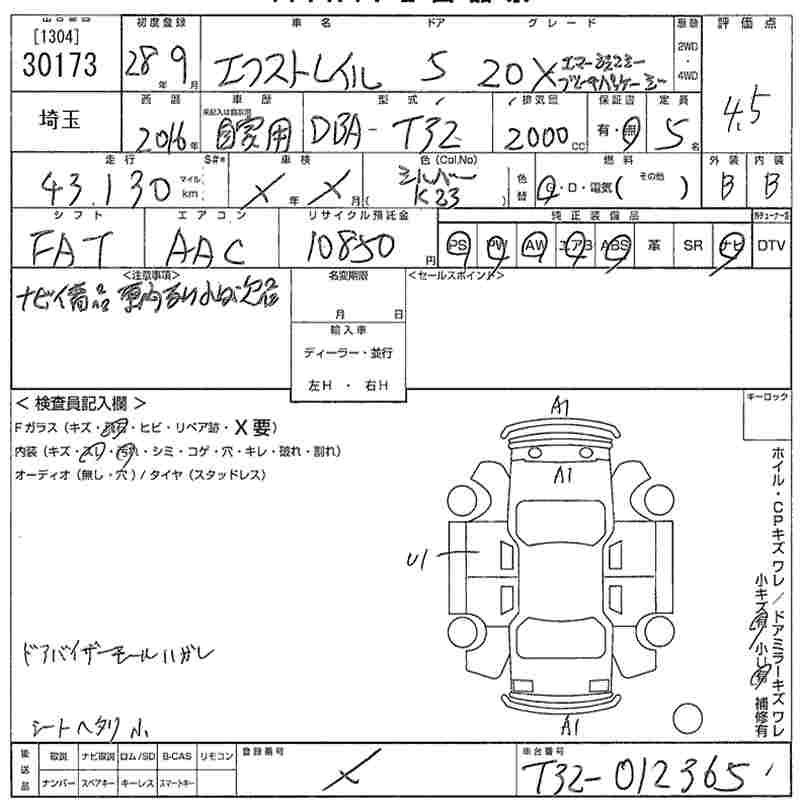 [1304]
30173
初度登録
28年9月
車名
エクストレイル
ドア
5
グレード
20X エマージェンシー
ブレーキパッケージ
2WD
・
4WD
評価点
4.5
埼玉
西暦
2016年
車歴
未記入は自家用
自家用
型式
DBA-T32
排気団
2000cc
保証書
有・無
定員
5名
走行
43,130
マイル
km
S#*
車検
X年X月
色(Col.No)
シルバー
K23
色替
燃料
G・D・電気(その他)
外装
B
内装
B
シフト
FAT
エアコン
AAC
リサイクル預託金
10850円
純正装備品
PS PW AW エアB ABS 革 SR ナビ
DTV
<注意事項>
ナビ備品
欠品
名変期限
月 日
輸入車
ディーラー・並行
左H・右H
<セールスポイント>
<検査員記入欄>
Fガラス(キズ・・ヒビ・リペア跡・X要)
内装(キズ・スレ・汚れ・シミ・コゲ・穴・キレ・破れ・割れ)
オーディオ(無し・穴)/タイヤ(スタッドレス)
キーロック
A1
A1
U1
A1
ホイル・CPキズ ワレ/ドアミラーキズ ワレ
小キズ有 小U有 補修有
ドアバイザーモールハガレ
シートヘタリ小
後送品
取説 ナビ取説 ロム/SD B-CAS リモコン
ナンバー スペアキー キーレス スマートキー
登録番号
X
車台番号
T32-012365